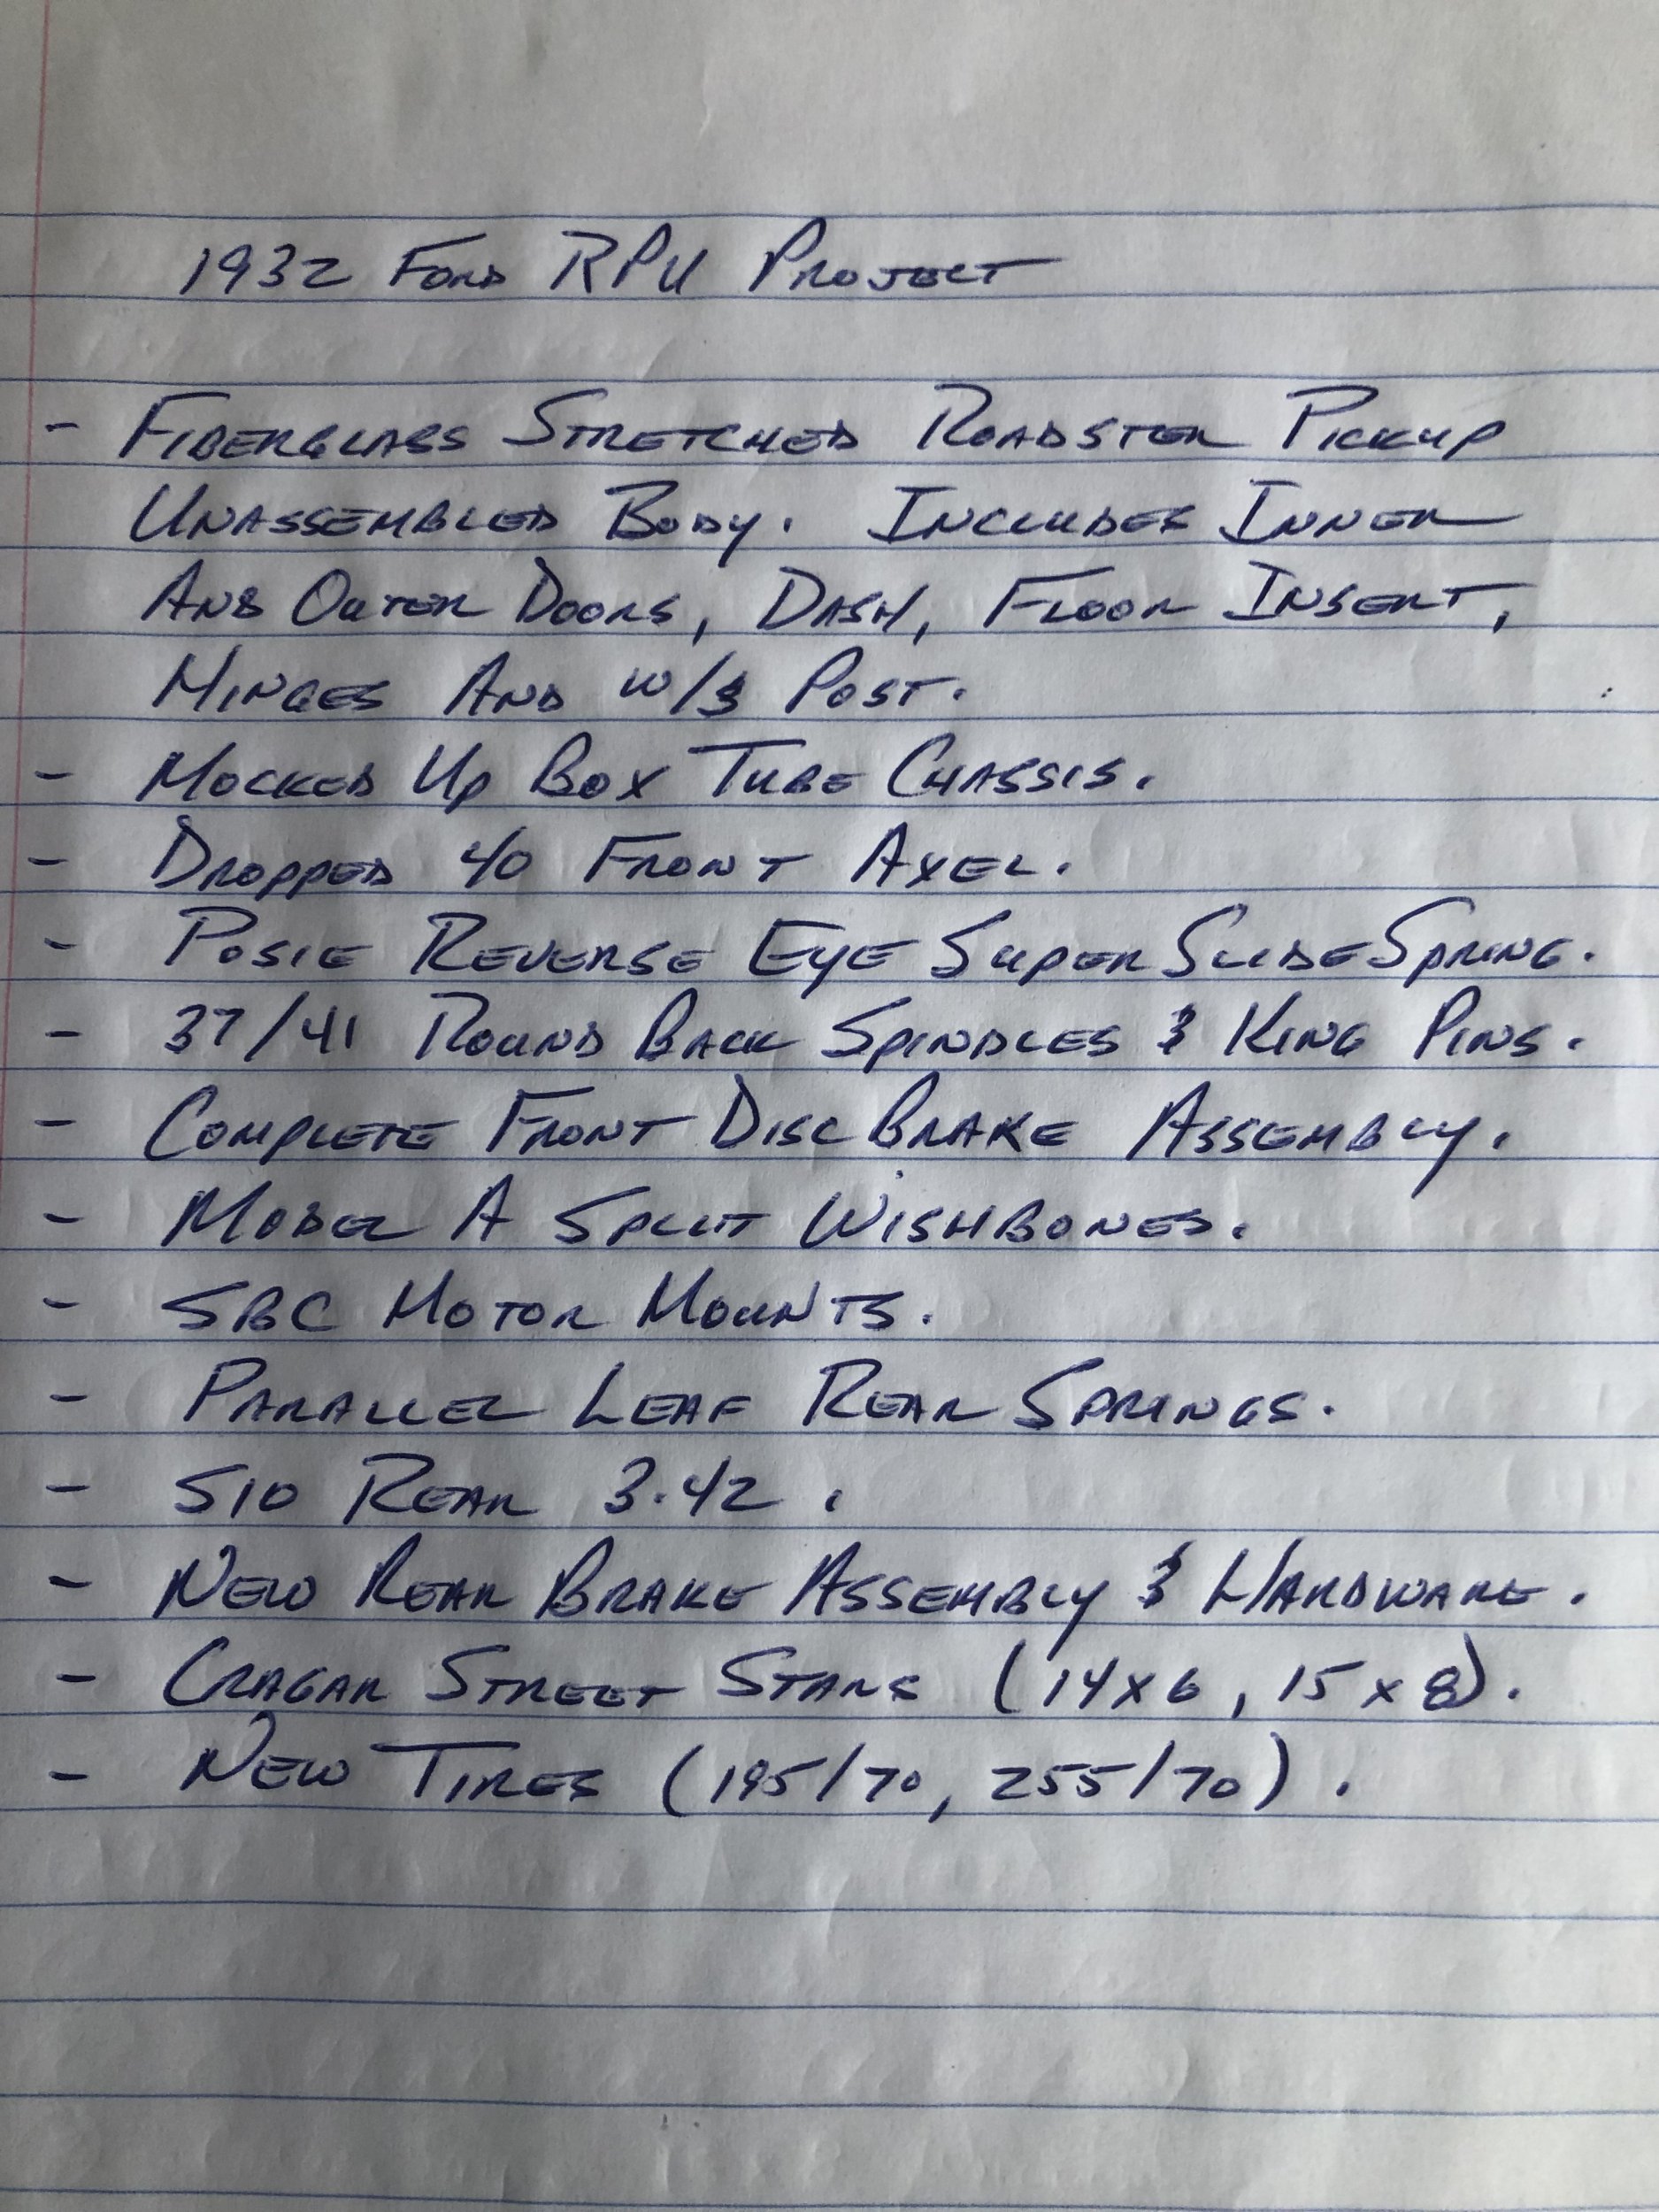 1932 Ford RPU Project
- Fiberglass Stretched Roadster Pickup
Unassembled Body. Includes Inner
And Outer Doors, Dash, Floor Insert,
Hinges And W/S Post.
- Mocked Up Box Tube Chassis.
- Dropped 40 Front Axel.
- Posie Reverse Eye Super Slide Spring.
- 37/41 Round Back Spindles & King Pins.
- Complete Front Disc Brake Assembly.
- Model A Split Wishbones.
- SBC Motor Mounts.
- Parallel Leaf Rear Springs.
- S10 Rear 3.42.
- New Rear Brake Assembly & Hardware.
- Cragar Street Stars (14x6, 15x8).
- New Tires (195/70, 255/70).